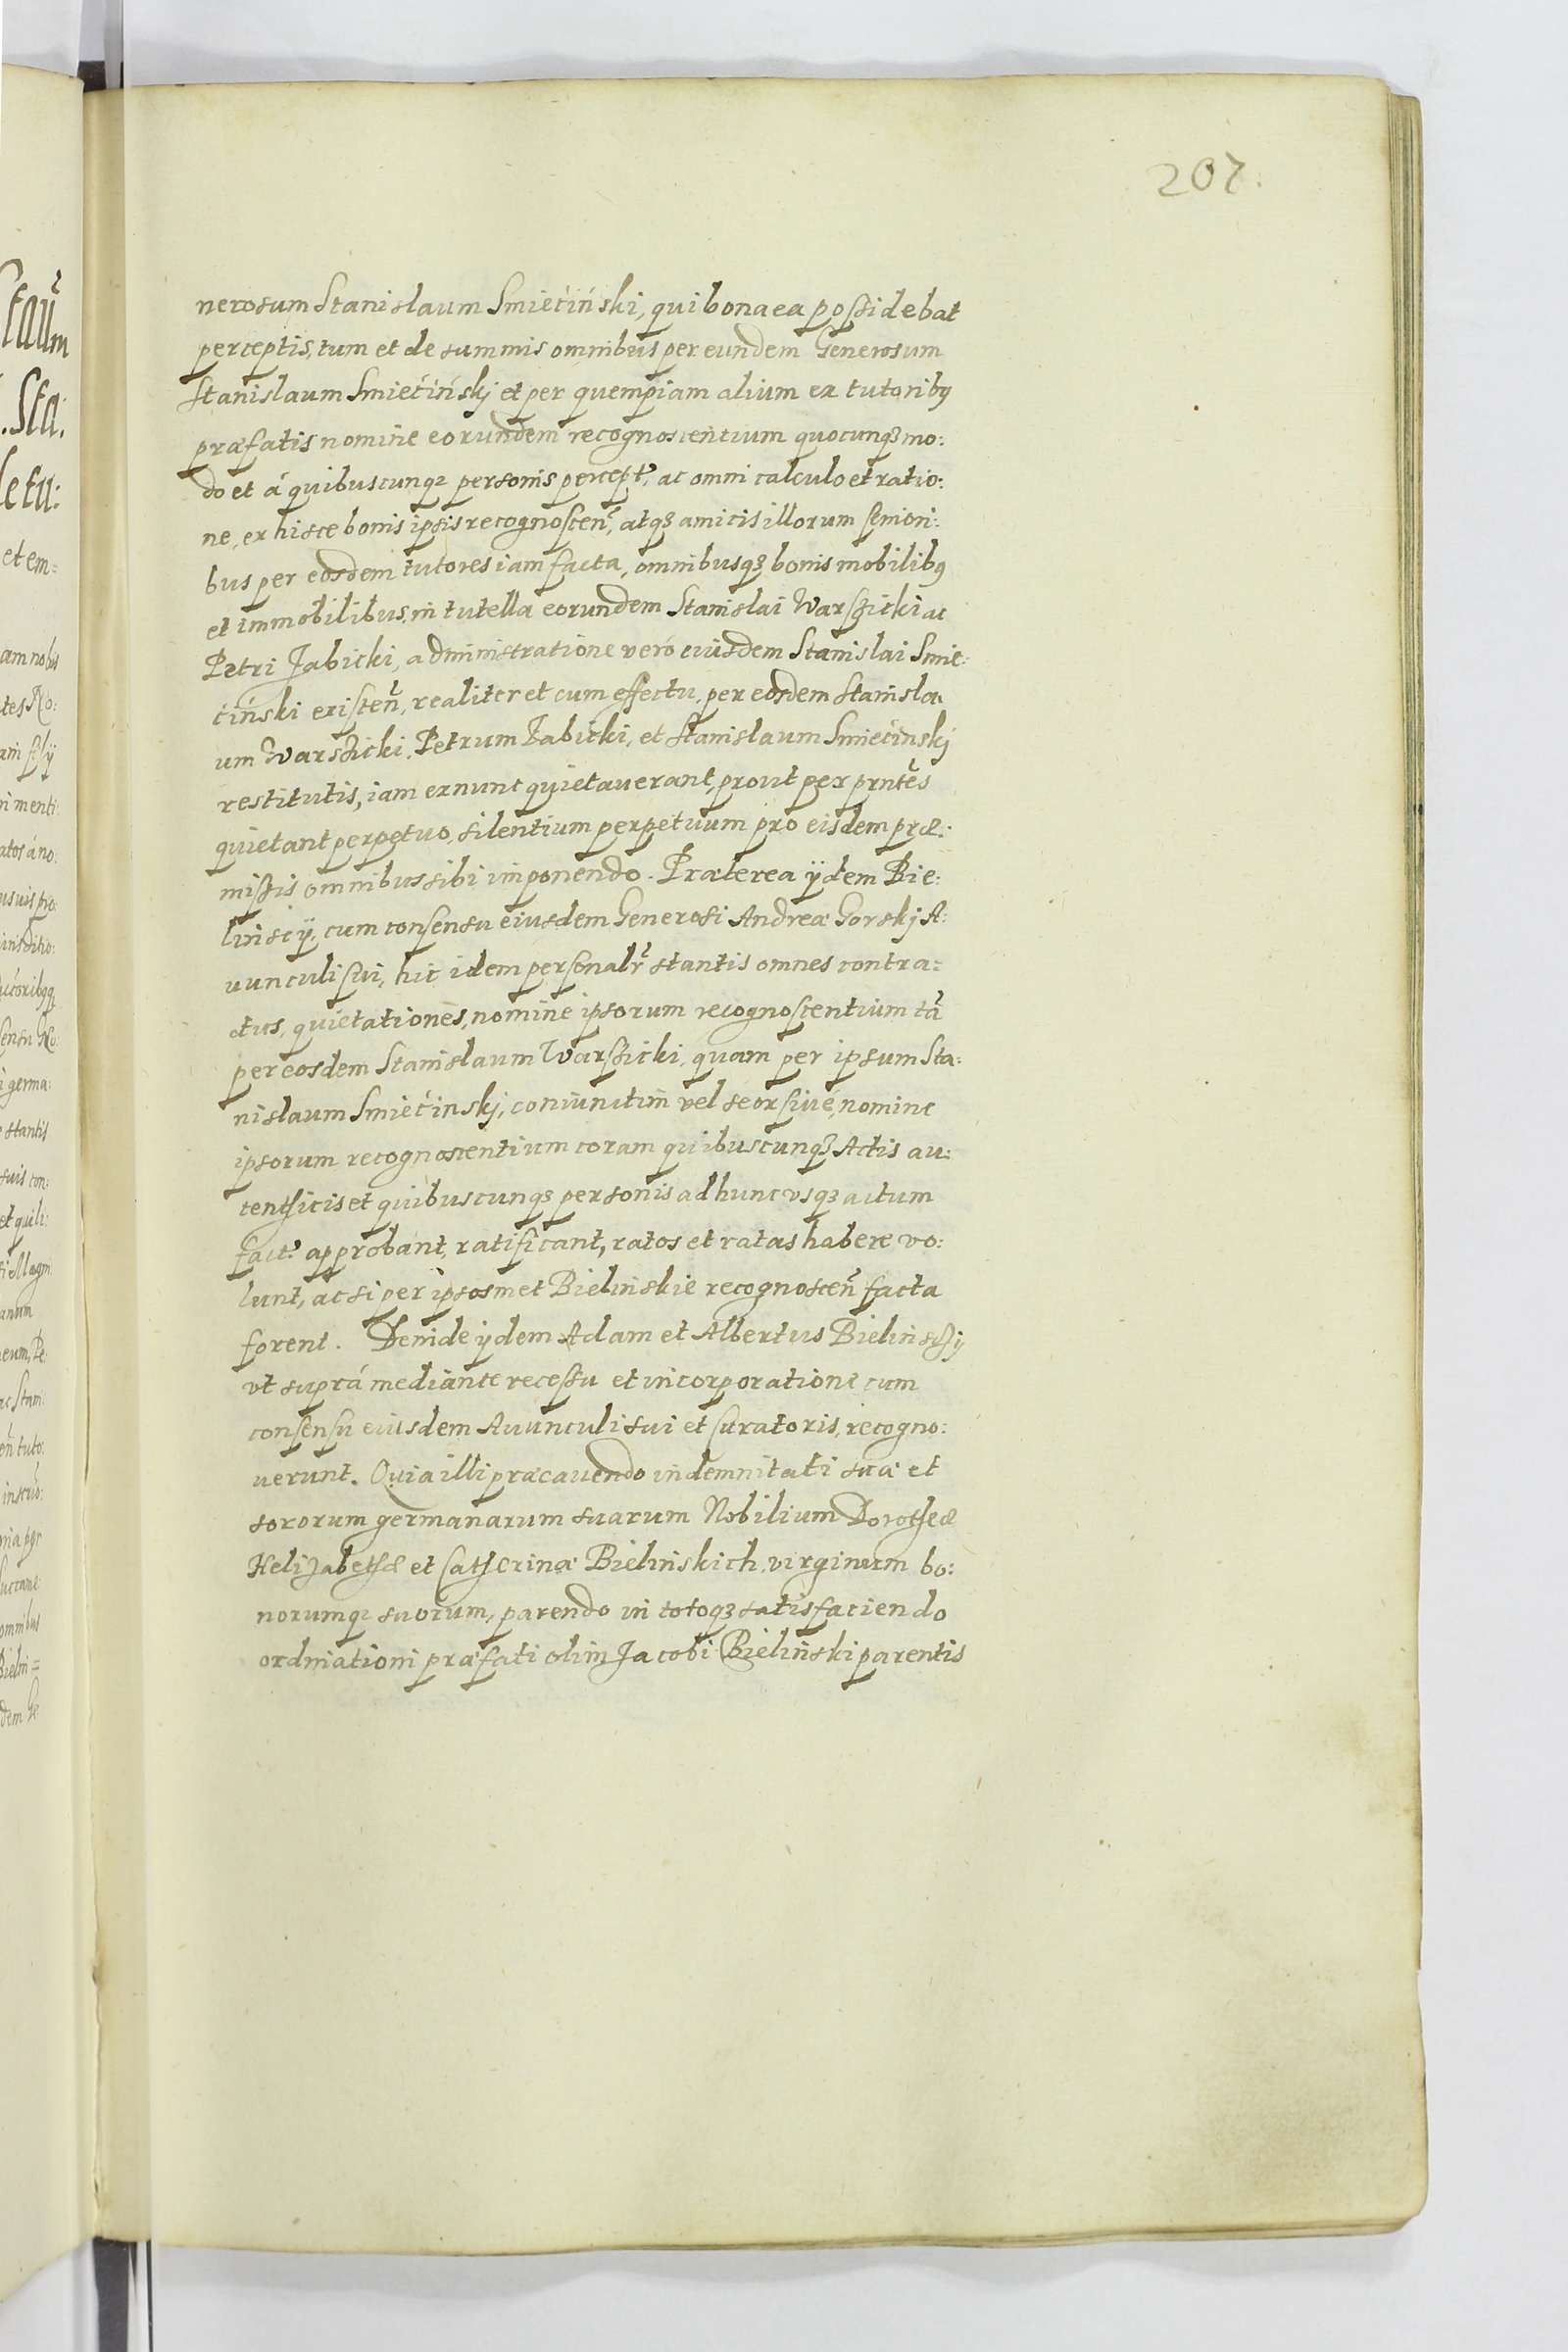 207.
nerosum Stanislaum Smiećiński, qui bona ea possidebat
perceptis, tum et de summis omnibus per eundem Generosum
Stanislaum Smiećińskj et per quempiam alium ex tutoribꝰ
præfatis nomine eorundem recognoscentium quocunqꝫ mo:
do et á quibuscunqꝫ personis percept̃, ac omni calculo et ratio:
ne, ex hisce bonis ipsis recognoscen̄, atqꝫ amicis illorum senion:
bus per eosdem tutores iam facta, omnibusqꝫ bonis mobilibꝰ
et immobilibus, in tutella eorundem Stanislai Warszicki ac
Petri Jabicki, administratione veró eiusdem Stanislai Smie:
ćiński existen̄, realiter et cum effectu, per eosdem Stanisla
um Warszicki, Petrum Jabicki, et Stanislaum Smiećinskj
restitutis, iam ex nunc quietauerant, prout per prñtes
quietant perpetuo, silentium perpetuum pro eisdem præ:
missis omnibus sibi imponendo. Præterea ÿdem Bie:
linscÿ, cum consensu eiusdem Generosi Andreæ Gorskj A:
uunculi sui, hic idem personalr̃ stantis omnes contra=
ctus, quietationes, nomine ipsorum recognoscentium tã
per eosdem Stanislaum Warszicki, quam per ipsum Sta:
nislaum Smiećinskj, coniunctim vel seorsiué, nomine
ipsorum recognoscentium coram quibuscunqꝫ Actis au:
tenthicis et quibuscunqꝫ personis ad hunc vsqꝫ actum
fact̃ approbant, ratificant, ratos et ratas habere vo:
lunt, ac si per ipsosmet Bielinskie recognoscen̄ facta
forent. Deinde ÿdem Adam et Albertus Bielinscÿ
vt suprá mediante recessu et incorporatione cum
consensu eiusdem Auunculi sui et Curatoris, recogno:
uerunt. Quia illi præcauendo indemnitati suæ et
sororum germanarum suarum Nobilium Dorotheæ
Helizabethæ et Catherinæ Bielinskich, virginum bo:
norumqꝫ suorum, parendo in totoqꝫ satisfaciendo
ordinationi præfati olim Jacobi Bieliński parentis